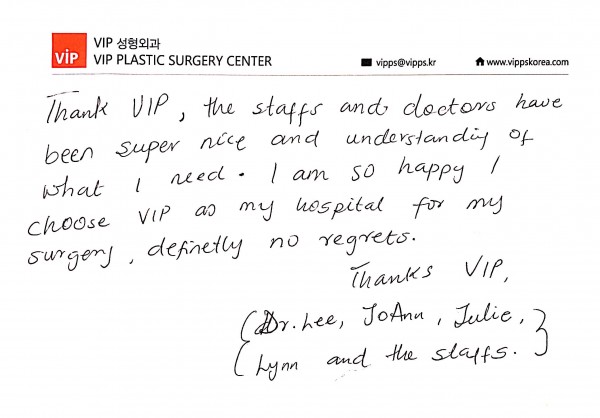 ViP
VIP 성형외과
VIP PLASTIC SURGERY CENTER
vipps@vipps.kr
www.vippskorea.com
Thank VIP, the staffs and doctors have
been super nice and understandig of
what I need. I am so happy I
choose VIP as my hospital for my
surgery, definetly no regrets.
Thanks VIP,
(Dr. Lee, JoAnn, Julie,
Lynn and the staffs.)